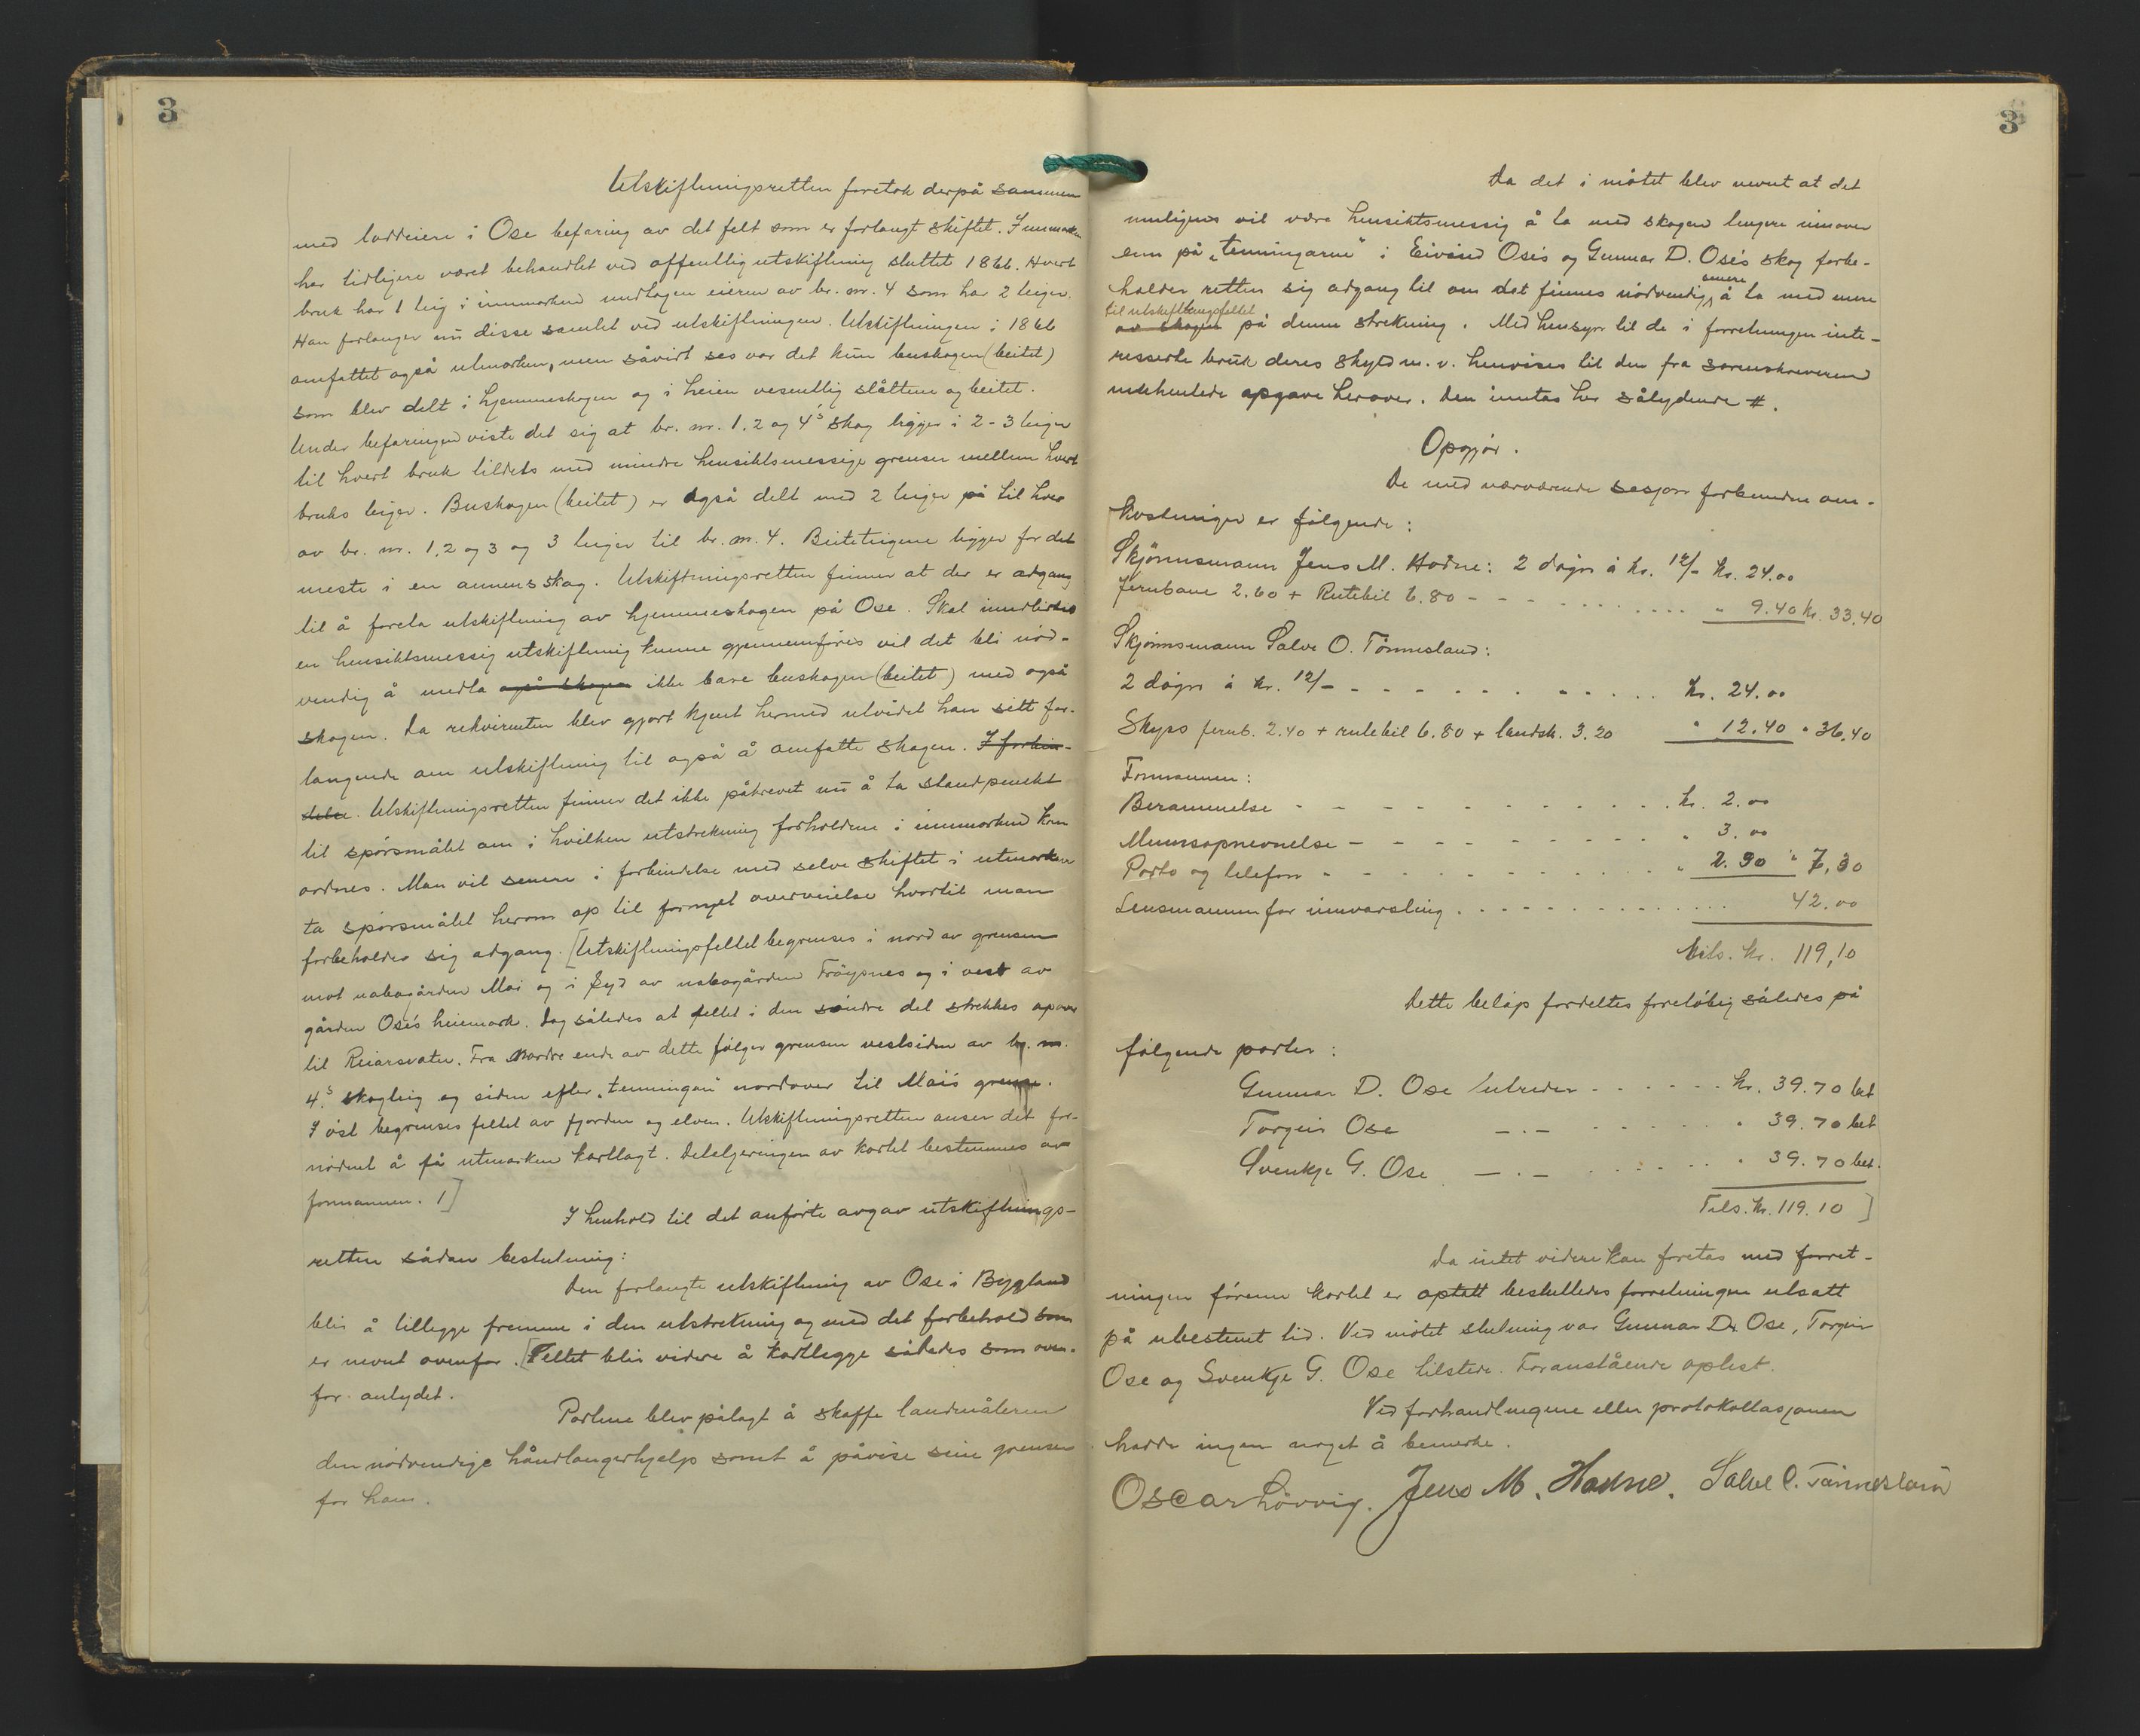 3
Utskiftningsretten foretok derpå sammen
med loddeiere i Ose befaring av det felt som er forlangt skiftet. Innmarken
har tidligere været behandlet ved offentlig utskiftning sluttet 1866. Hvert
bruk har 1 teig i innmarken undtagen eieren av br. nr. 4 som har 2 teiger.
Han forlanger nu disse samlet ved utskiftningen. Utskiftningen i 1866
omfattet også utmarken, men såvidt ses var det kun buskogen (beitet)
som blev delt i hjemmeskogen og i heien vesentlig slåttene og beitet.
Under befaringen viste det sig at br. nr. 1, 2 og 4's skog ligger i 2-3 teiger
til hvert bruk tildels med mindre hensiktsmessige grenser mellem hvert
bruks teiger. Buskogen (beitet) er også delt med 2 teiger på til hver
av br. nr. 1, 2 og 3 og 3 teiger til br. nr. 4. Beiteteigene ligger for det
meste i en annens skog. Utskiftningsretten finner at der er adgang
til å foreta utskiftning av hjemmeskogen på Ose. Skal imidlertid
en hensiktsmessig utskiftning kunne gjennemføres vil det bli nød-
vendig å medta også skogen ikke bare buskogen (beitet) med også
skogen. Da rekvirenten blev gjort kjent hermed utvidet han sitt for-
langende om utskiftning til også å omfatte skogen. I forbin-
delse. Utskiftningsretten finner det ikke påkrevet nu å ta standpunkt
til spørsmålet om i hvilken utstrekning forholdene i innmarken kan
ordnes. Man vil senere i forbindelse med selve skiftet i utmarken
ta spørsmålet herom op til fornyet overveielse hvortil man
forbeholder sig adgang. [Utskiftningsfeltet begrenses i nord av grensen
mot nabogården Moi og i Syd av nabogården Frøysnes og i vest av
gården Ose's heiemark. Dog således at feltet i den søndre del strekkes opover
til Reiarsvatn. Fra Nordre ende av dette følger grensen vestsiden av br. nr.
4's skogteig og siden efter "tenningan" nordover til Moi's grense.
I øst begrenses feltet av fjorden og elven. Utskiftningsretten anser det for-
nødent å få utmarken kartlagt. Detaljeringen av kartet bestemmes av
formannen. 1]
I henhold til det anførte avgav utskiftnings-
retten sådan beslutning:
Den forlangte utskiftning av Ose i Bygland
blir å tillegge fremme i den utstrekning og med det forbehold som
er nevnt ovenfor. [Feltet blir videre å kartlegge således som oven-
for antydet.
Partene blev pålagt å skaffe landmåleren
den nødvendige håndlangerhjelp samt å påvise sine grenser
for ham.
3
Da det i møtet blev nevnt at det
muligens vil være hensiktsmessig å ta med skogen lengere innover
enn på "tenningarne" i Eivind Ose's og Gunnar D. Ose's skog forbe-
holder retten sig adgang til om dat finnes nødvendig senere å ta med mere
til utskiftningsfeltet
av skogen på denne strekning. Med hensyn til de i forretningen inte-
resserte bruk deres skyld m. v. henvises til den fra sorenskriveren
innhentede opgave herover. Den inntas her sålydende #.
Opgjør.
De med nærværende sesjon forbundne om-
kostninger er følgende:
Skjønnsmann Jens M. Hodne: 2 døgn á kr. 12/- kr. 24.00
Jernbane 2.60 + Rutebil 6.80 - - - " 9.40 kr. 33.40
Skjønnsmann Salve O. Tønnesland:
2 døgn á kr. 12/- - - - kr. 24.00
Skyss jernb. 2.40 + rutebil 6.80 + landsk. 3.20 " 12.40 " 36,40
Formannen:
Berammelse - - - kr. 2.00
Mannsopnevnelse - - - " 3.00
Porto og telefon - - - " 2.30 " 7,30
Lensmannen for innvarsling . . . 42.00
Tils. kr. 119,10
Dette beløp fordeltes foreløbig således på
følgende parter:
Gunnar D. Ose utreder - - - kr. 39.70 bet
Torgeir Ose —.— - - - " 39.70 bet
Svenkje G. Ose —.— - - - " 39.70 bet.
Tils. kr. 119.10 ]
Da intet videre kan foretas med forret-
ningen førenn kartet er optatt besluttedes forretningen utsatt
på ubestemt tid. Ved møtet slutning var Gunnar D. Ose, Torgeir
Ose og Svenkje G. Ose tilstede. Foranstående oplest.
Ved forhandlingene eller protokollasjonen
hadde ingen noget å bemerke.
Oscar Løvvig. Jens M. Hodne. Salve O. Tønnesland